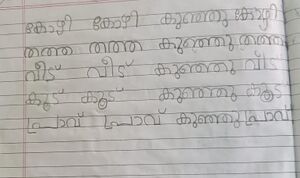 കോഴി കോഴി കുഞ്ഞു കോഴി
തത്ത തത്ത കുഞ്ഞു തത്ത
വീട് വീട് കുഞ്ഞു വീട്
കൂട് കൂട് കുഞ്ഞു കൂട്
പ്രാവ് പ്രാവ് കുഞ്ഞു പ്രാവ്